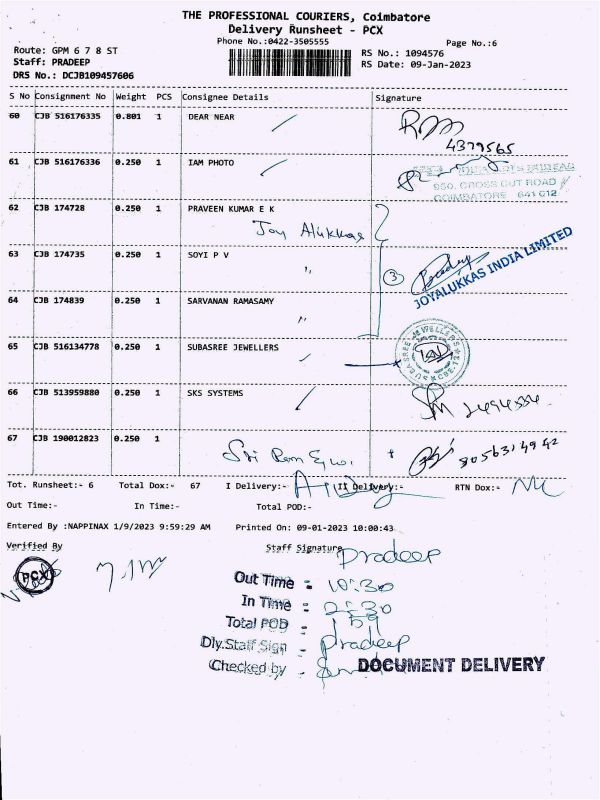 THE PROFESSIONAL COURIERS, Coimbatore
Delivery Runsheet - PCX
Phone No.:0422-3505555
Page No.:6
Route: GPM 6 7 8 ST
Staff: PRADEEP
DRS No.: DCJB109457606
RS No.: 1094576
RS Date: 09-Jan-2023
S No Consignment No Weight PCS Consignee Details Signature
60 CJB 516176335 0.801 1 DEAR NEAR
4379565
61 CJB 516176336 0.250 1 IAM PHOTO
950, CROSS CUT ROAD
COIMBATORE 641 012
62 CJB 174728 0.250 1 PRAVEEN KUMAR E K
Joy Alukkas
63 CJB 174735 0.250 1 SOYI P V
"
3
JOYALUKKAS INDIA LIMITED
64 CJB 174839 0.250 1 SARVANAN RAMASAMY
"
65 CJB 516134778 0.250 1 SUBASREE JEWELLERS
SUBASREE JEWELLERS
66 CJB 513959880 0.250 1 SKS SYSTEMS
67 CJB 190012823 0.250 1
Sri Ram
Tot. Runsheet:- 6 Total Dox:- 67 I Delivery:- II Delivery:- RTN Dox:- Nil
Out Time:- In Time:- Total POD:-
Entered By :NAPPINAX 1/9/2023 9:59:29 AM Printed On: 09-01-2023 10:00:43
Verified By Staff Signature Pradeep
PCX
Out Time : 10:30
In Time : 2:30
Total POD :
Dly.Staff Sign : Pradeep
Checked by :
DOCUMENT DELIVERY